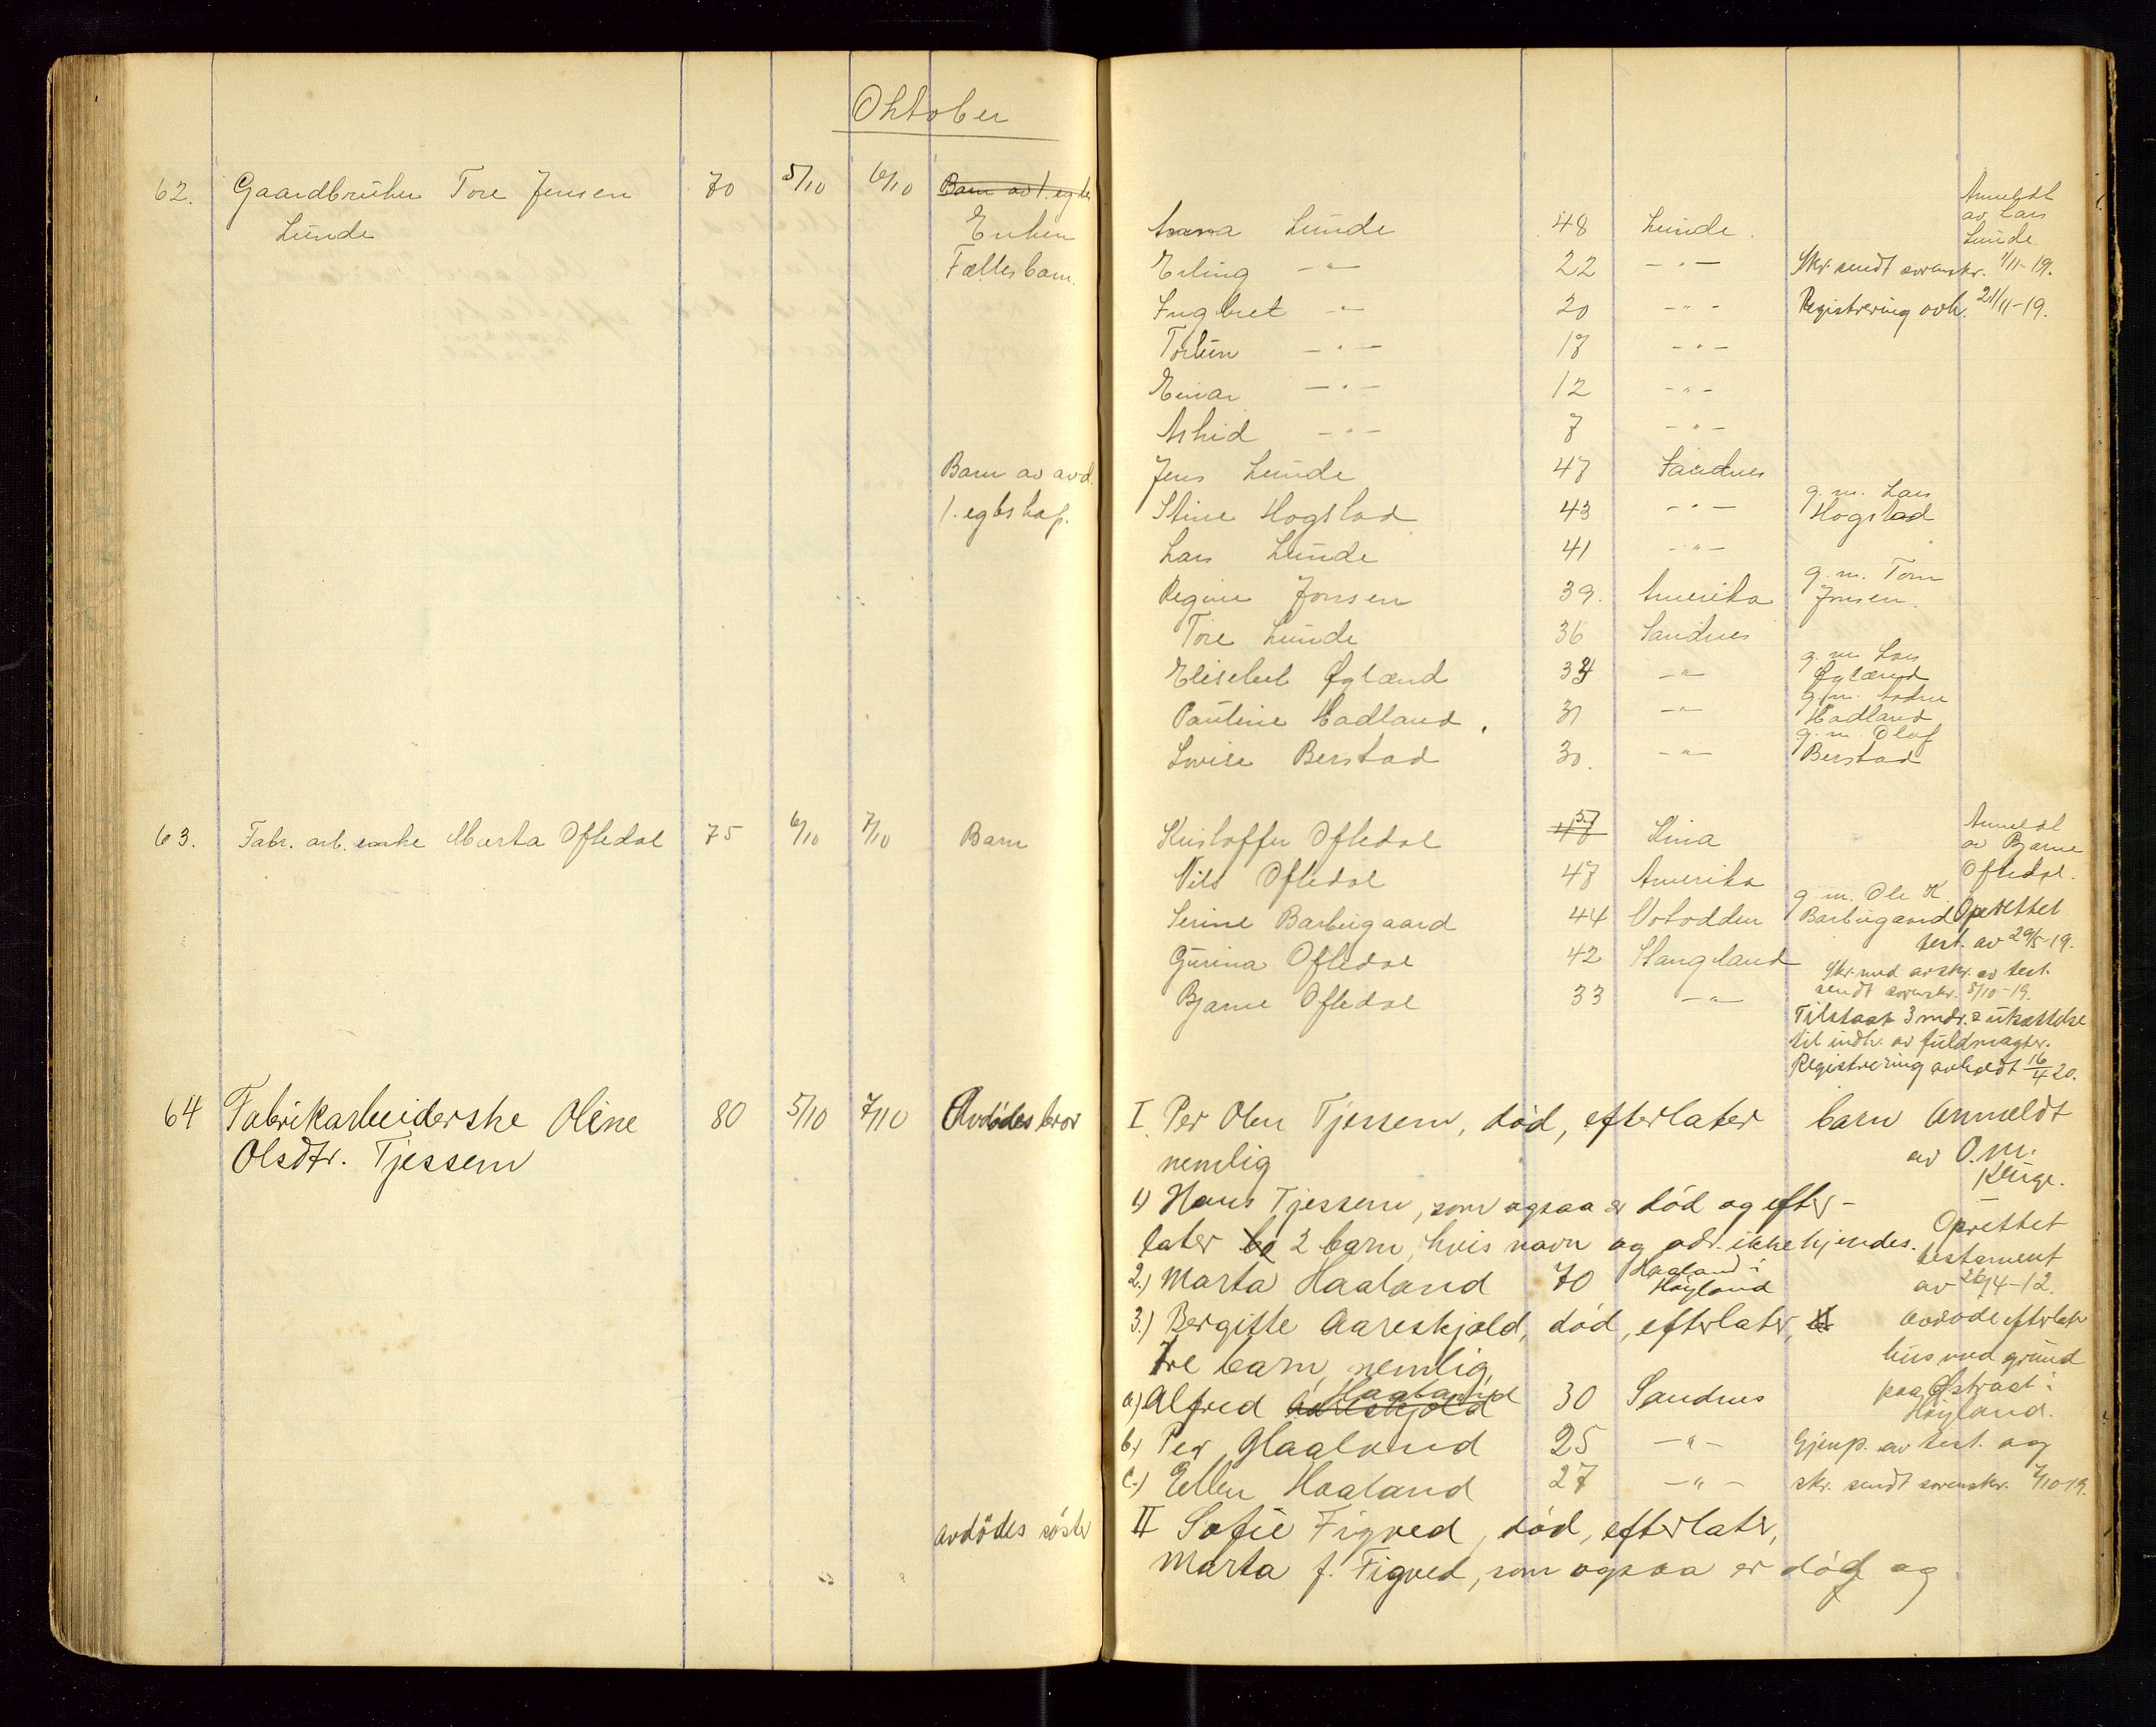 Oktober
62. Gaardbruker Tore Jensen 70 5/10 6/10 Barn av 1. egtes
Lunde
Enken Anna Lunde 48 Lunde. Anmeldt av Lars Lunde.
Fællesbarn. Erling -"- 22 -"- Skr. sendt sorenskr. 1/11-19.
Ingbret -"- 20 -"- Registrering avh. 21/11-19.
Torbin -"- 17 -"-
Einar -"- 12 -"-
Astrid -"- 7 -"-
Barn av avd. Jens Lunde 47 Sandnes
1. egtskap. Stine Hogstad 43 -"- g. m. Lars Hogstad
Lars Lunde 41 -"-
Regine Jonsen 39. Amerika g. m. Tom Jonsen.
Tore Lunde 36 Sandnes
Elisebet Øglænd 34 -"- g. m. Lars Øglænd
Pauline Hadland. 31 -"- g. m. Hadland
Lovise Berstad 30. -"- g. m. Olaf Berstad
63. Fabr. arb. enke Marta Oftedal 75 6/10 7/10 Barn Kristoffer Oftedal 57 Kina Anmeldt av Bjarne Oftedal.
Nils Oftedal 47 Amerika
Serine Barbugaard 44 Notodden g. m. Ole K. Barbugaard Oprettet
test. av 29/5-19.
Gurina Oftedal 42 Stangeland Skr. med avskr. av test.
sendt sorenskr. 8/10-19.
Bjarne Oftedal 33 -"-
Tilstaat 3 mdr.s utsættelse
til indh. av fuldmagter.
Registrering avholdt 16/4 20.
64 Fabrikarbeiderske Oline 80 5/10 7/10 Avdødes bror I. Per Olsen Tjessem, død, efterlater barn Anmeldt
Olsdtr. Tjessem
nemlig av O. M. Kluge.
1) Hans Tjessem, som ogsaa er død og efter-
later be 2 barn, hvis navn og adr. ikke kjendes. Oprettet
testament
2.) Marta Haaland 70 Haaland i Høyland av 26/4-12.
3.) Bergitte Aareskjold, død, efterlater, avdøde efterlater
tre barn, nemlig, hus med grund
a) Alfred Aareskjold Haaland 30 Sandnes paa Østraat i
Høyland.
b.) Per Haaland 25 -"- Gjenp. av test. og
c.) Ellen Haaland 27 -"- skr. sendt sorenskr. 7/10-19.
avdødes søster II Sofie Figved, død, efterlater,
Marta f. Figved, som ogsaa er død og